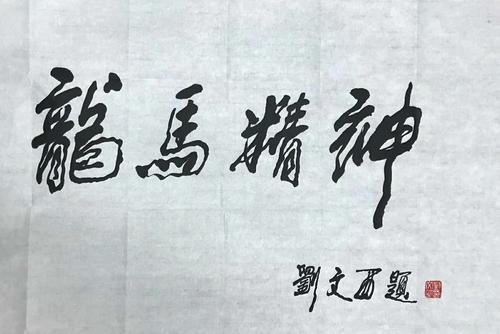 龍馬精神
劉文西題